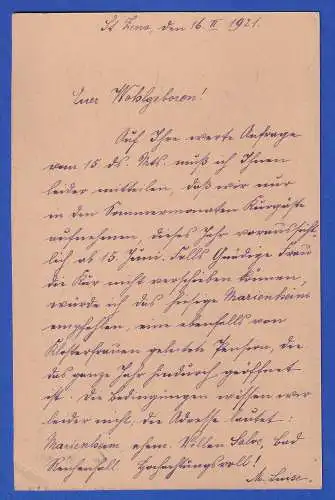 St Zeno, den 16. II 1921.
Euer Wohlgeboren!
Auf Ihre werte Anfrage
vom 15 ds. Mts. muß ich Ihnen
leider mitteilen, daß wir nur
in den Sommermonaten Kurgäste
aufnehmen, dieses Jahr voraussicht
lich ab 15. Juni. Falls Gnädige Frau
die Kur nicht verschieben können,
würde ich das hiesige Marienheim
empfehlen, eine ebenfalls von
Klosterfrauen geleitete Pension, die
das ganze Jahr hindurch geöffnet
ist. Die Bedingungen wissen wir
leider nicht, die Adresse lautet:
Marienheim, ehem. Villen Salve, Bad
Reichenhall. Hochachtungsvoll!
M.